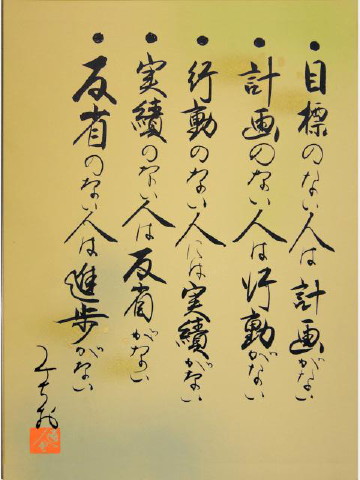 ・目標のない人は計画がない
・計画のない人は行動がない
・行動のない人には実績がない
・実績のない人は反省がない
・反省のない人は進歩がない